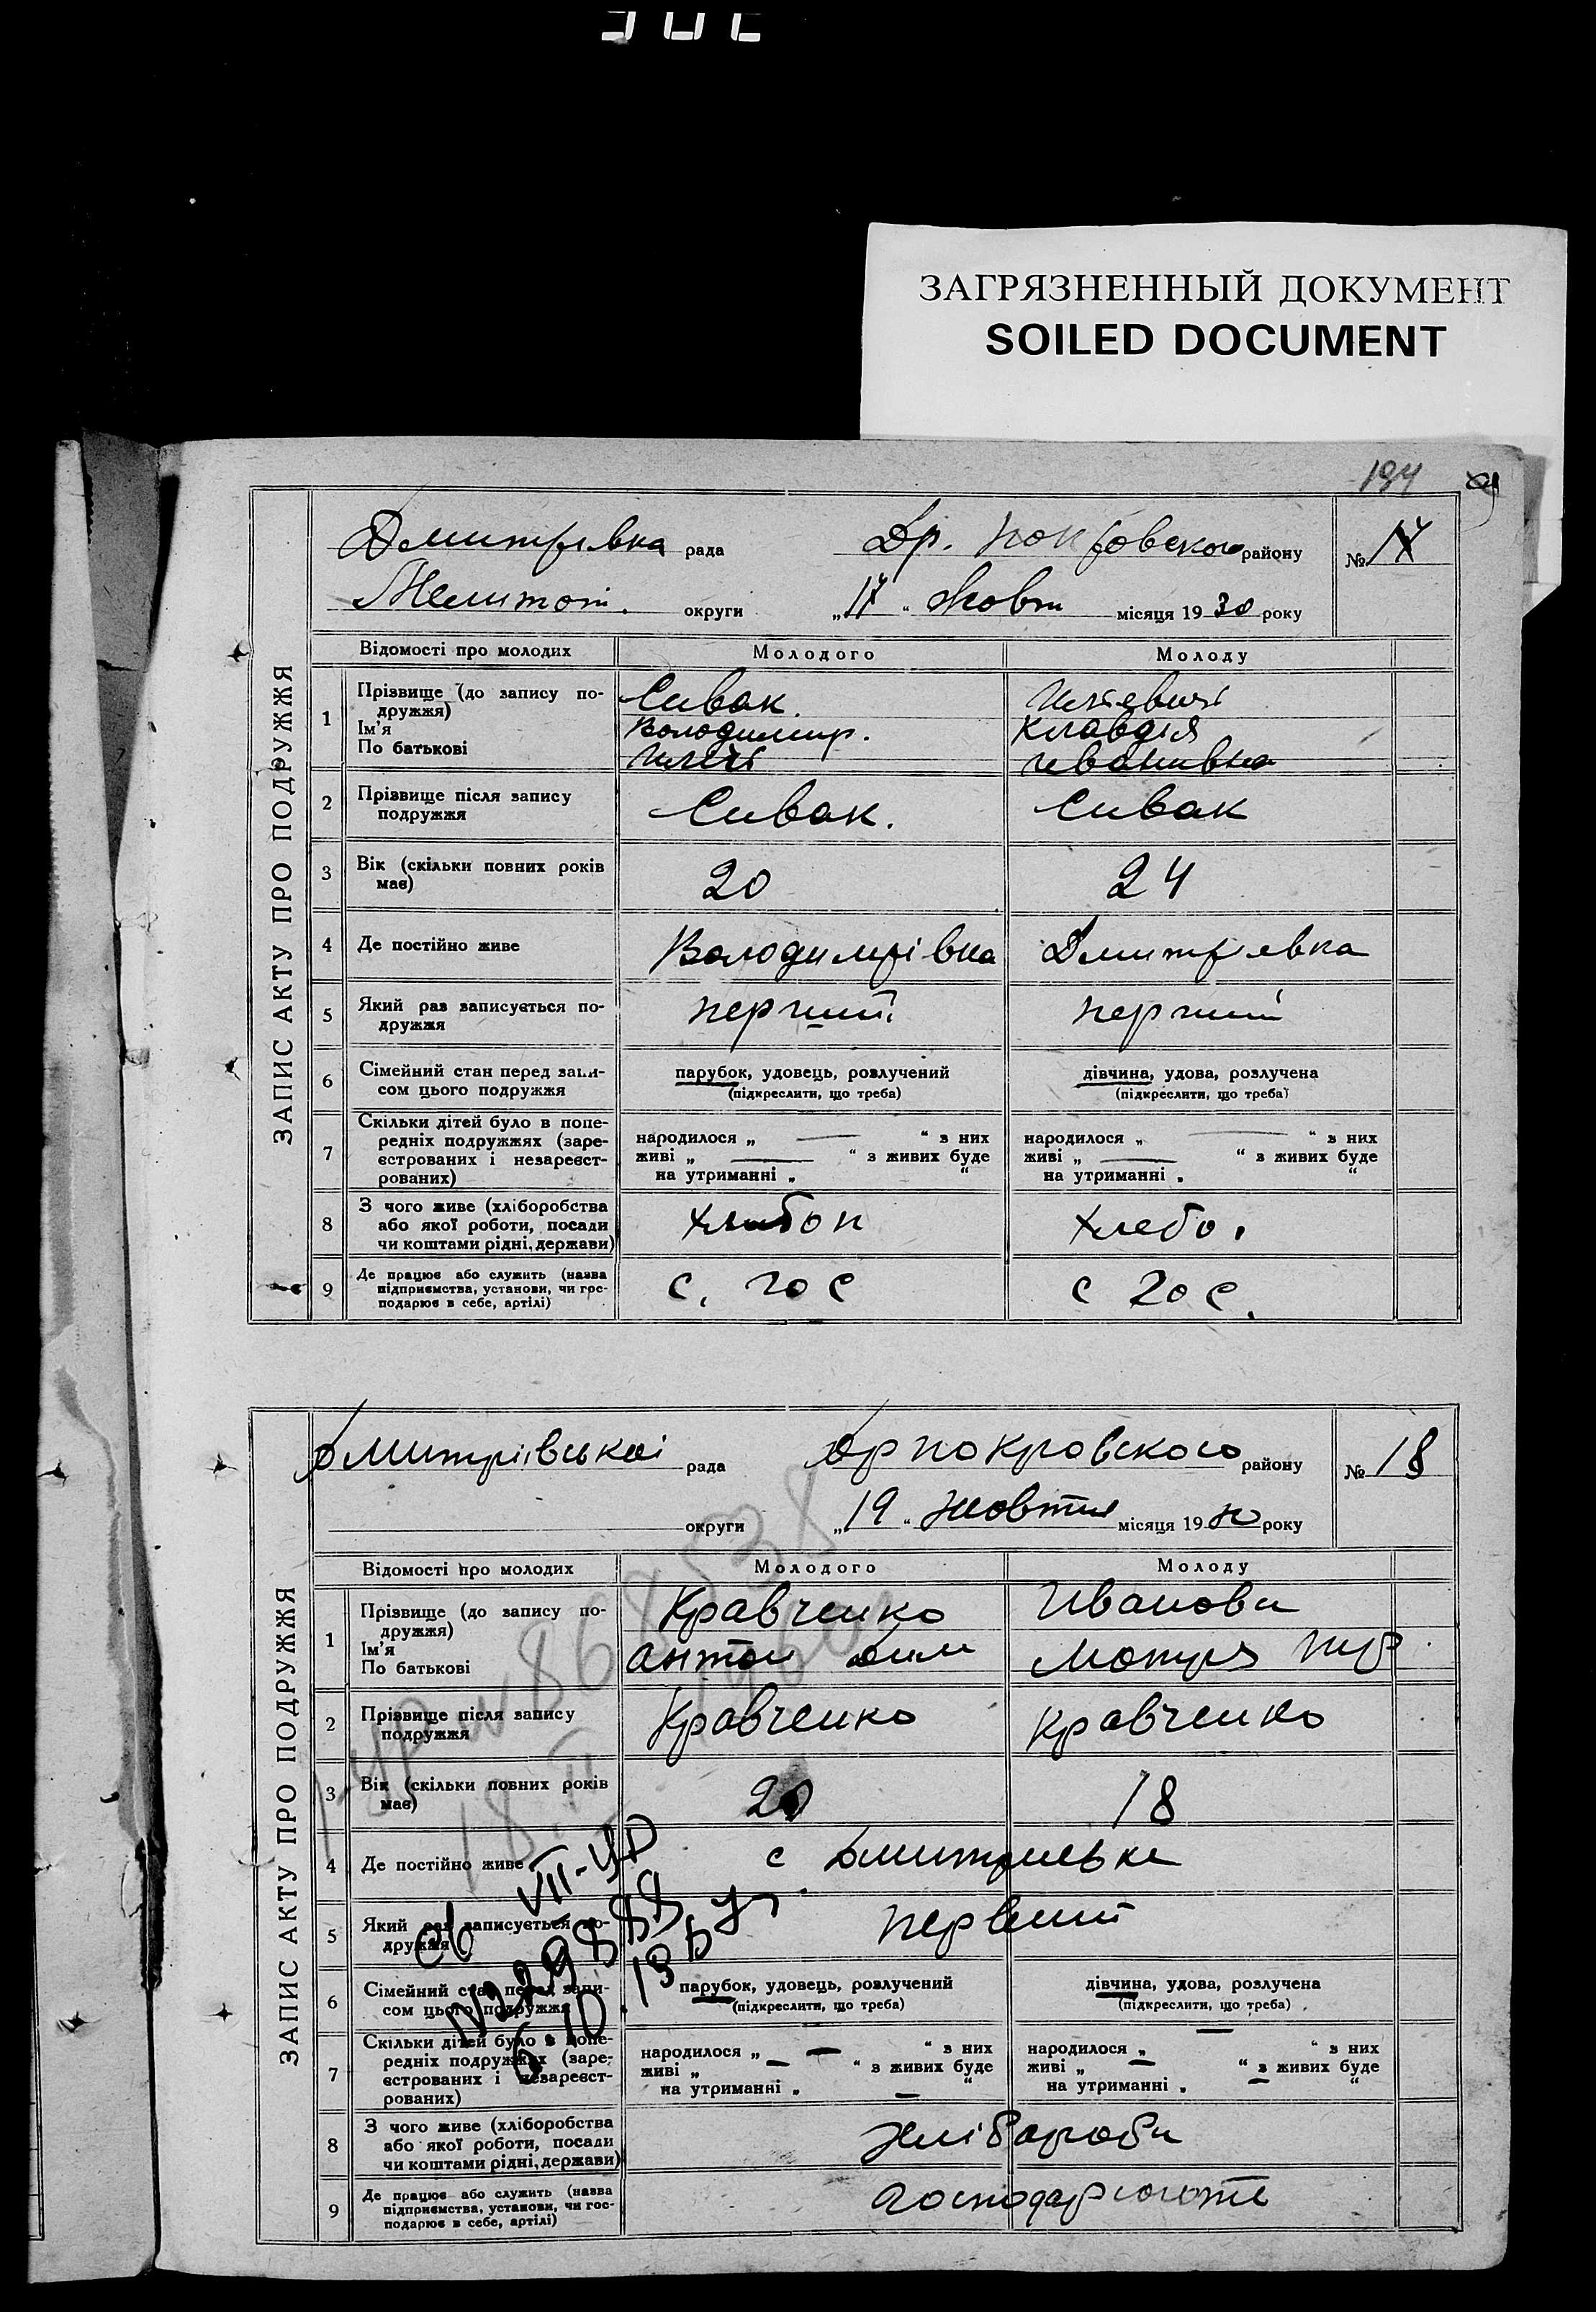 ЗАГРЯЗНЕННЫЙ ДОКУМЕНТ
SOILED DOCUMENT
194
ЗАПИС АКТУ ПРО ПОДРУЖЖЯ
Дмитрівка рада Др. Покровського району № 17
Мелитоп. округи „17“ Жовт місяця 1930 року
Відомості про молодих Молодого Молоду
1 Прізвище (до запису по-
дружжя) Сивак
Ім'я Володимир. Клавдія
По батькові Ілліч Ивановна
2 Прізвище після запису
подружжя Сивак. Сивак
3 Вік (скільки повних років
має) 20 24
4 Де постійно живе Володимирівка Дмитрівка
5 Який раз записується по-
дружжя перший перший
6 Сімейний стан перед запи-
сом цього подружжя
парубок, удовець, розлучений дівчина, удова, розлучена
(підкреслити, що треба) (підкреслити, що треба)
7 Скільки дітей було в попе-
редніх подружжях (заре-
єстрованих і незареєст-
рованих)
народилося „ — “ з них народилося „ — “ з них
живі „ — “ з живих буде живі „ — “ з живих буде
на утриманні „ “ на утриманні „ “
8 З чого живе (хліборобства
або якої роботи, посади
чи коштами рідні, держави) хлебо.
9 Де працює або служить (назва
підприємства, установи, чи гос-
подарює в себе, артілі) с. гос с гос.
ЗАПИС АКТУ ПРО ПОДРУЖЖЯ
Дмитріівської рада Др Покровского району № 18
округи „19“ жовтня місяця 1930 року
Відомості про молодих Молодого Молоду
1 Прізвище (до запису по-
дружжя) Кравченко Иванова
Ім'я Антон Мотря
По батькові
2 Прізвище після запису
подружжя Кравченко Кравченко
3 Вік (скільки повних років
має) 20 18
4 Де постійно живе с Дмитрівка
5 Який раз записується по-
дружжя первий
6 Сімейний стан перед запи-
сом цього подружжя
парубок, удовець, розлучений дівчина, удова, розлучена
(підкреслити, що треба) (підкреслити, що треба)
7 Скільки дітей було в попе-
редніх подружжях (заре-
єстрованих і незареєст-
рованих)
народилося „ — “ з них народилося „ — “ з них
живі „ — “ з живих буде живі „ — “ з живих буде
на утриманні „ — “ на утриманні „ — “
8 З чого живе (хліборобства
або якої роботи, посади
чи коштами рідні, держави) хлібороби
9 Де працює або служить (назва
підприємства, установи, чи гос-
подарює в себе, артілі) господарюють